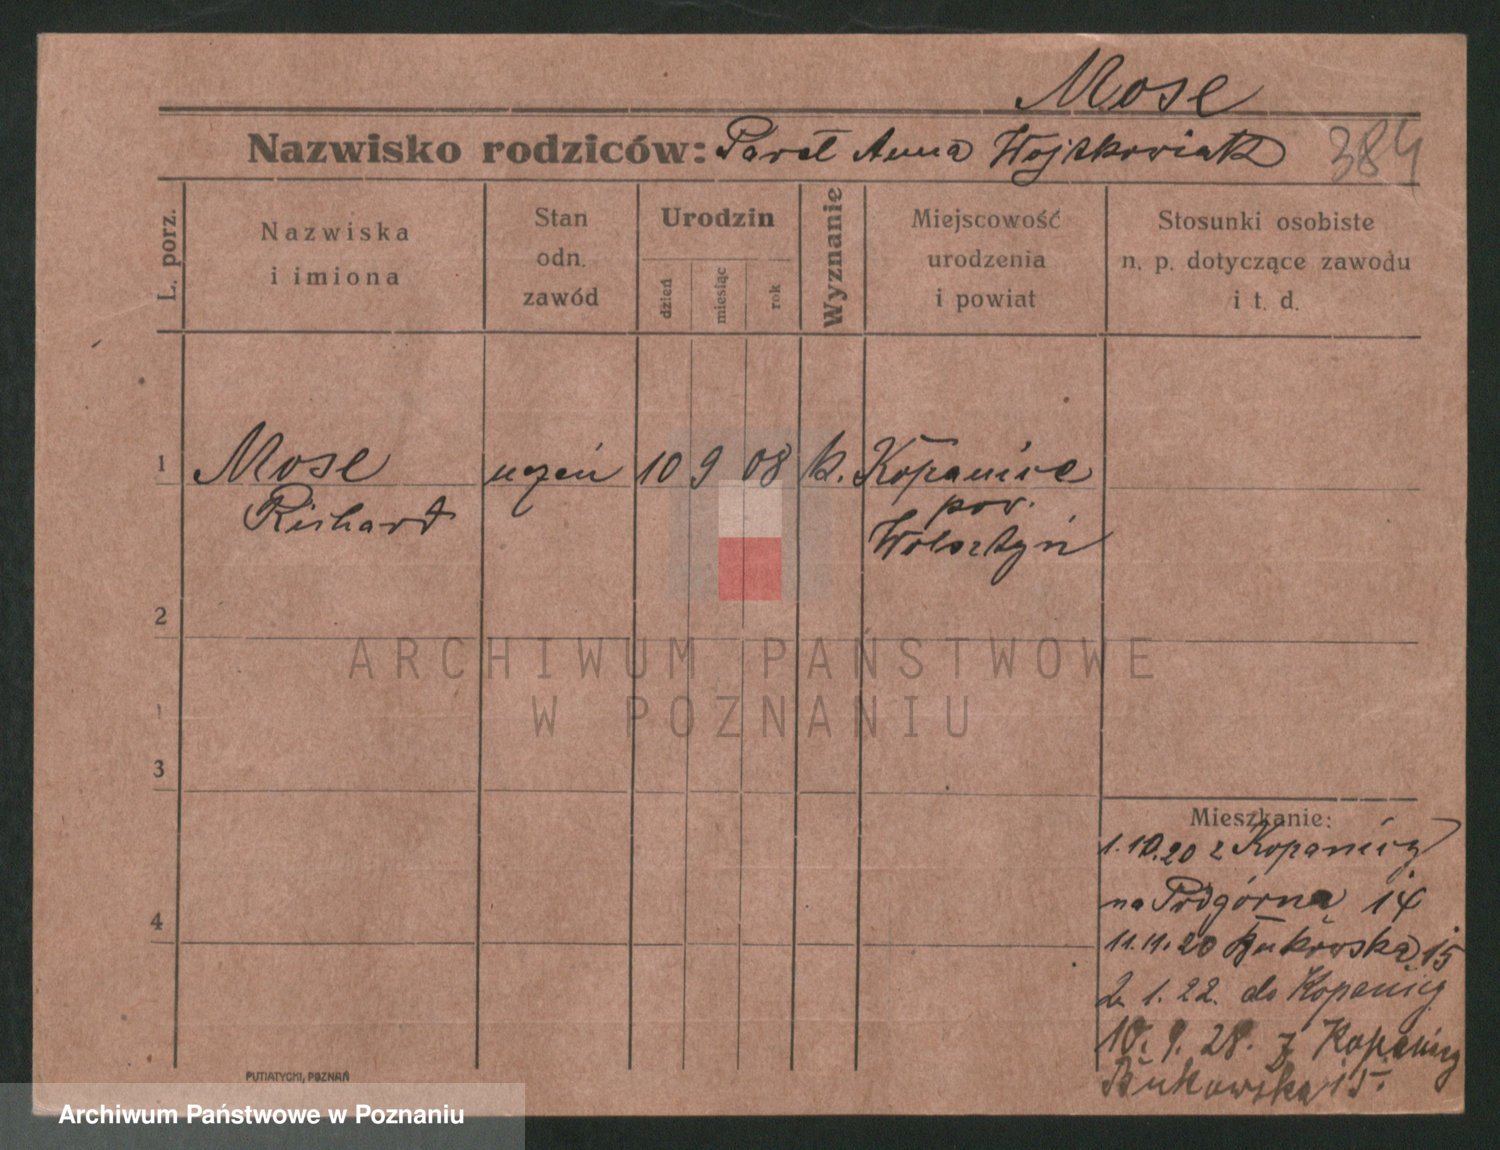 Mose
Nazwisko rodziców: Paweł Anna Wojtkowiak 384
L. porz.
Nazwiska
i imiona
Stan
odn.
zawód
Urodzin
dzień
miesiąc
rok
Wyznanie
Miejscowość
urodzenia
i powiat
Stosunki osobiste
n. p. dotyczące zawodu
i t. d.
1 Mose uczeń 10 9 08 k. Kopanice
Richard pow.
Wolsztyn
2
ARCHIWUM PAŃSTWOWE
W POZNANIU
3
Mieszkanie:
1.10.20 z Kopanicy
na Podgórna 14
4
11.11.20 Bukowska 15
2. 1. 22. do Kopanicy
10. 9. 28. z Kopanicy
Bukowska 15.
PUTIATYCKI, POZNAŃ
Archiwum Państwowe w Poznaniu